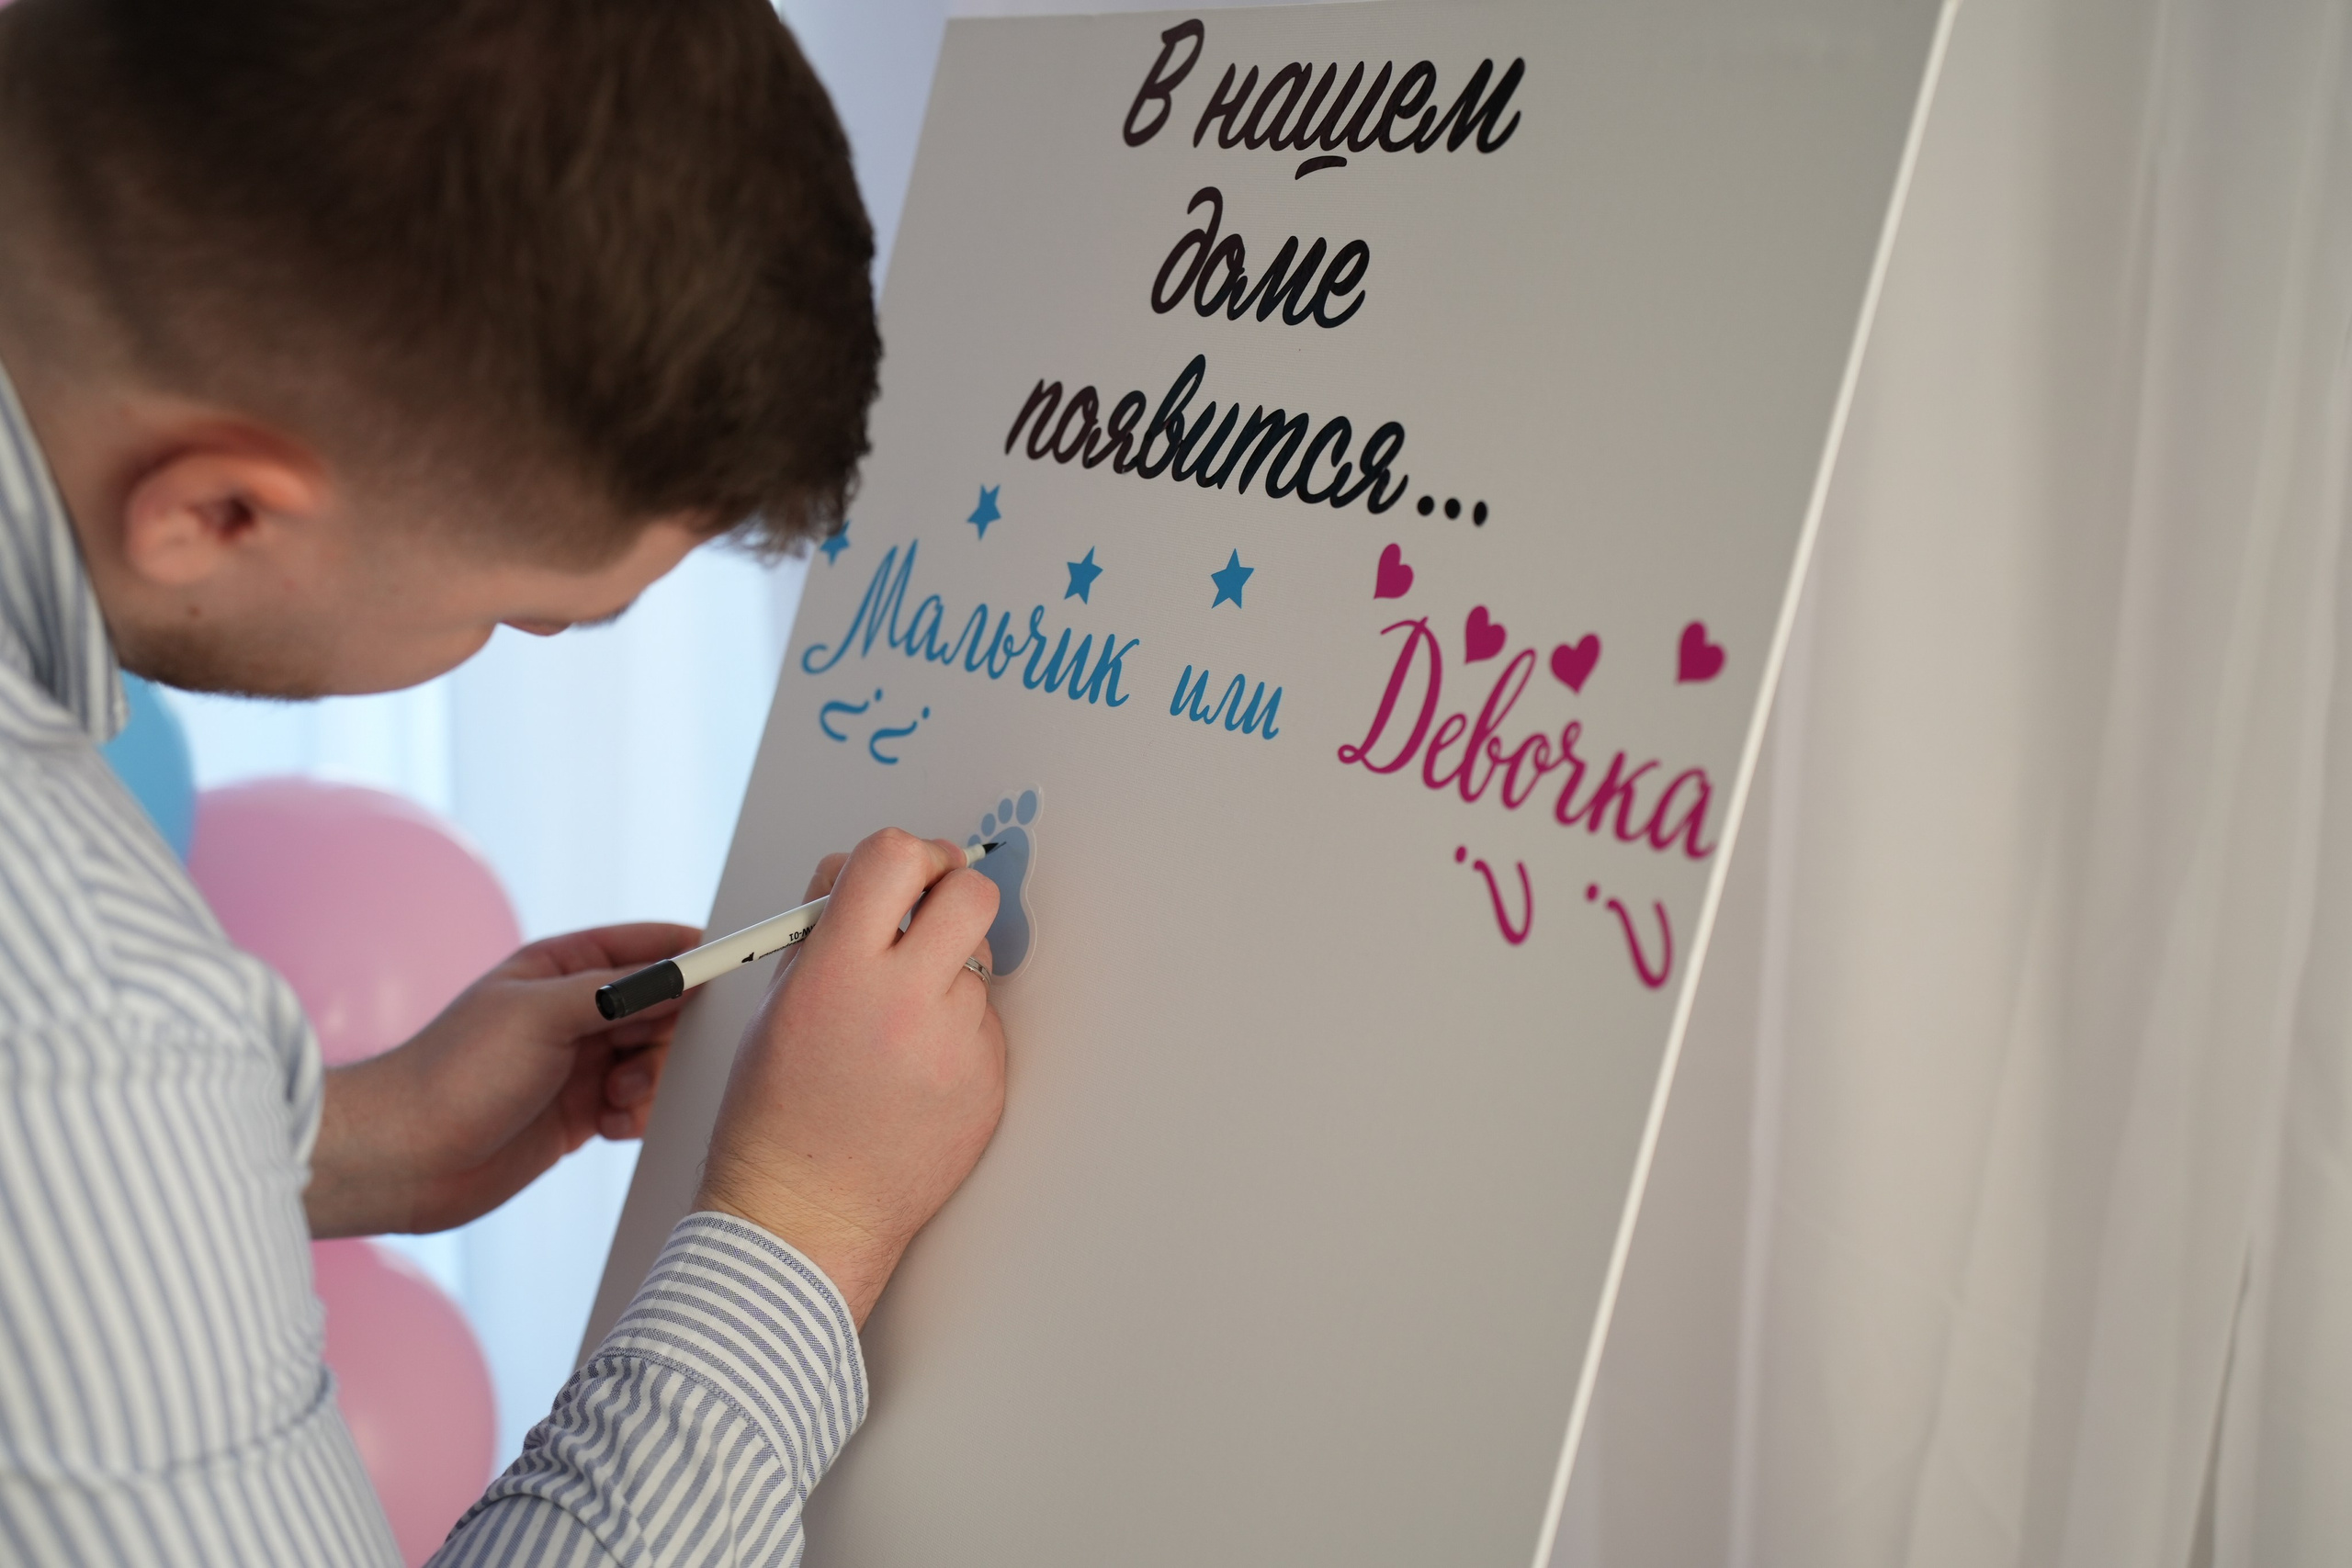 В нашем
доме
появится...
Мальчик или Девочка
W-01